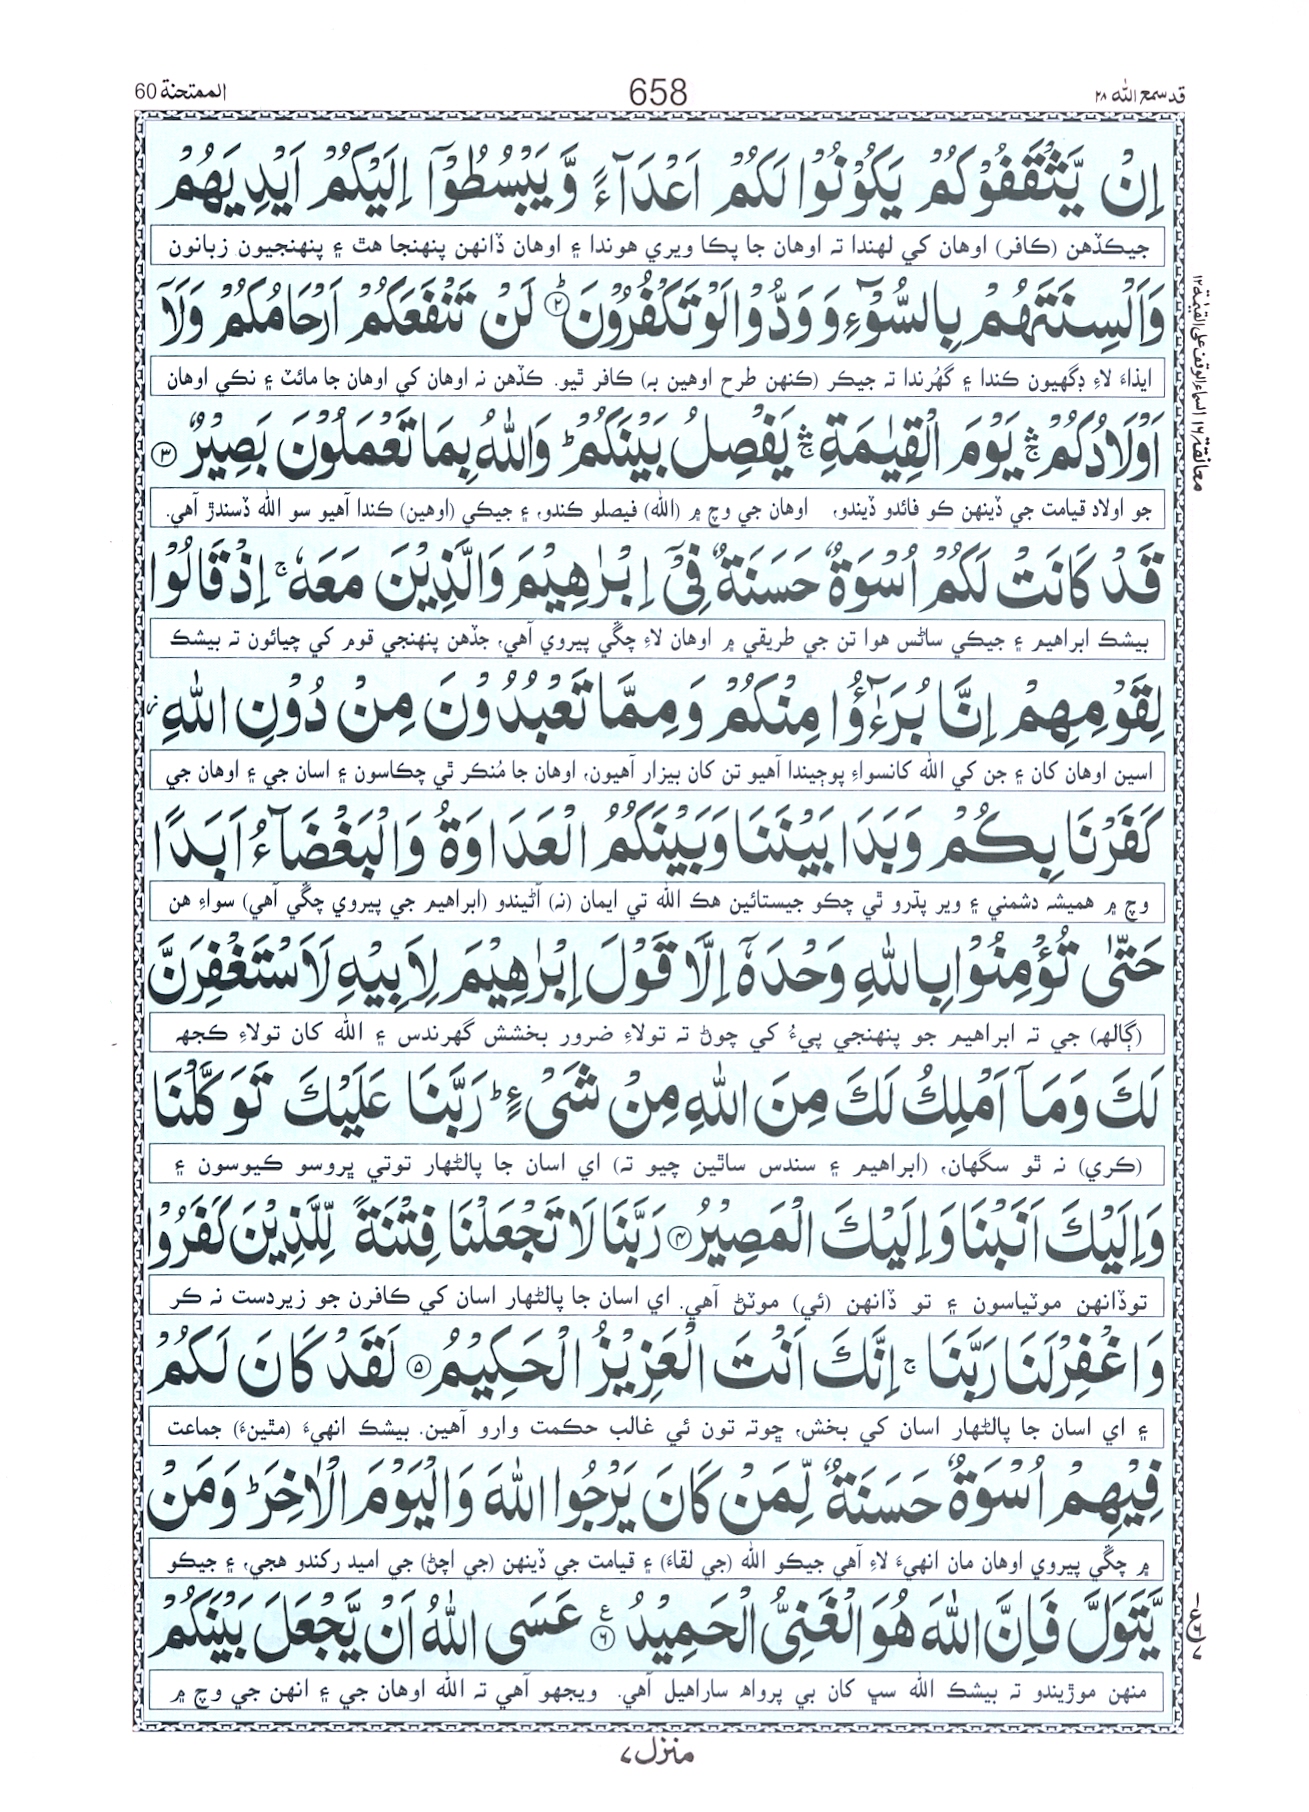 الممتحنة 60
658
قد سمع الله ٢٨
اِنْ يَّثْقَفُوْكُمْ يَكُوْنُوْا لَكُمْ اَعْدَآءً وَّ يَبْسُطُوْۤا اِلَيْكُمْ اَيْدِيَهُمْ
جيڪڏهن (ڪافر) اوهان کي لهندا تہ اوهان جا پڪا ويري هوندا ۽ اوهان ڏانهن پنهنجا هٿ ۽ پنهنجيون زبانون
وَاَلْسِنَتَهُمْ بِالسُّوْٓءِ وَ وَدُّوْا لَوْ تَكْفُرُوْنَ ؕ ﴿۲﴾ لَنْ تَنْفَعَكُمْ اَرْحَامُكُمْ وَلَاۤ
ايذاءَ لاءِ ڊگهيون ڪندا ۽ گهُرندا تہ جيڪر (ڪنهن طرح اوهين بہ) ڪافر ٿيو. ڪڏهن نہ اوهان کي اوهان جا مائٽ ۽ نڪي اوهان
اَوْلَادُكُمْ ۛۚ يَوْمَ الْقِيٰمَةِ ۛۚ يَفْصِلُ بَيْنَكُمْ ؕ وَاللّٰهُ بِمَا تَعْمَلُوْنَ بَصِيْرٌ ﴿۳﴾
جو اولاد قيامت جي ڏينهن ڪو فائدو ڏيندو، اوهان جي وچ ۾ (الله) فيصلو ڪندو، ۽ جيڪي (اوهين) ڪندا آهيو سو الله ڏسندڙ آهي.
قَدْ كَانَتْ لَكُمْ اُسْوَةٌ حَسَنَةٌ فِيْۤ اِبْرٰهِيْمَ وَالَّذِيْنَ مَعَهٗ ۚ اِذْ قَالُوْا
بيشڪ ابراهيم ۽ جيڪي ساڻس هوا تن جي طريقي ۾ اوهان لاءِ چڱي پيروي آهي، جڏهن پنهنجي قوم کي چيائون تہ بيشڪ
لِقَوْمِهِمْ اِنَّا بُرَءٰٓؤُا مِنْكُمْ وَمِمَّا تَعْبُدُوْنَ مِنْ دُوْنِ اللّٰهِ ز
اسين اوهان کان ۽ جن کي الله کانسواءِ پوڄيندا آهيو تن کان بيزار آهيون، اوهان جا مُنڪر ٿي چڪاسون ۽ اسان جي ۽ اوهان جي
كَفَرْنَا بِكُمْ وَبَدَا بَيْنَنَا وَبَيْنَكُمُ الْعَدَاوَةُ وَالْبَغْضَآءُ اَبَدًا
وچ ۾ هميشہ دشمني ۽ وير پڌرو ٿي چڪو جيستائين هڪ الله تي ايمان (نہ) آڻيندو (ابراهيم جي پيروي چڱي آهي) سواءِ هن
حَتّٰى تُؤْمِنُوْا بِاللّٰهِ وَحْدَهٗۤ اِلَّا قَوْلَ اِبْرٰهِيْمَ لِاَبِيْهِ لَاَسْتَغْفِرَنَّ
(ڳالهہ) جي تہ ابراهيم جو پنهنجي پيءُ کي چوڻ تہ تولاءِ ضرور بخشش گهرندس ۽ الله کان تولاءِ ڪجهہ
لَكَ وَمَاۤ اَمْلِكُ لَكَ مِنَ اللّٰهِ مِنْ شَىْءٍ ؕ رَبَّنَا عَلَيْكَ تَوَكَّلْنَا
(ڪري) نہ ٿو سگهان، (ابراهيم ۽ سندس ساٿين چيو تہ) اي اسان جا پالڻهار توتي ڀروسو ڪيوسون ۽
وَاِلَيْكَ اَنَبْنَا وَاِلَيْكَ الْمَصِيْرُ ﴿۴﴾ رَبَّنَا لَا تَجْعَلْنَا فِتْنَةً لِّلَّذِيْنَ كَفَرُوْا
توڏانهن موٽياسون ۽ تو ڏانهن (ئي) موٽڻ آهي. اي اسان جا پالڻهار اسان کي ڪافرن جو زيردست نہ ڪر
وَاغْفِرْ لَنَا رَبَّنَا ۚ اِنَّكَ اَنْتَ الْعَزِيْزُ الْحَكِيْمُ ﴿۵﴾ لَقَدْ كَانَ لَكُمْ
۽ اي اسان جا پالڻهار اسان کي بخش، ڇوتہ تون ئي غالب حڪمت وارو آهين. بيشڪ انهيءَ (مٿينءَ) جماعت
فِيْهِمْ اُسْوَةٌ حَسَنَةٌ لِّمَنْ كَانَ يَرْجُوا اللّٰهَ وَالْيَوْمَ الْاٰخِرَ ؕ وَمَنْ
۾ چڱي پيروي اوهان مان انهيءَ لاءِ آهي جيڪو الله (جي لقاءَ) ۽ قيامت جي ڏينهن (جي اچڻ) جي اميد رکندو هجي، ۽ جيڪو
يَّتَوَلَّ فَاِنَّ اللّٰهَ هُوَ الْغَنِىُّ الْحَمِيْدُ ﴿۶﴾ ع عَسَى اللّٰهُ اَنْ يَّجْعَلَ بَيْنَكُمْ
منهن موڙيندو تہ بيشڪ الله سڀ کان بي پرواهہ ساراهيل آهي. ويجهو آهي تہ الله اوهان جي ۽ انهن جي وچ ۾
منزل ٧